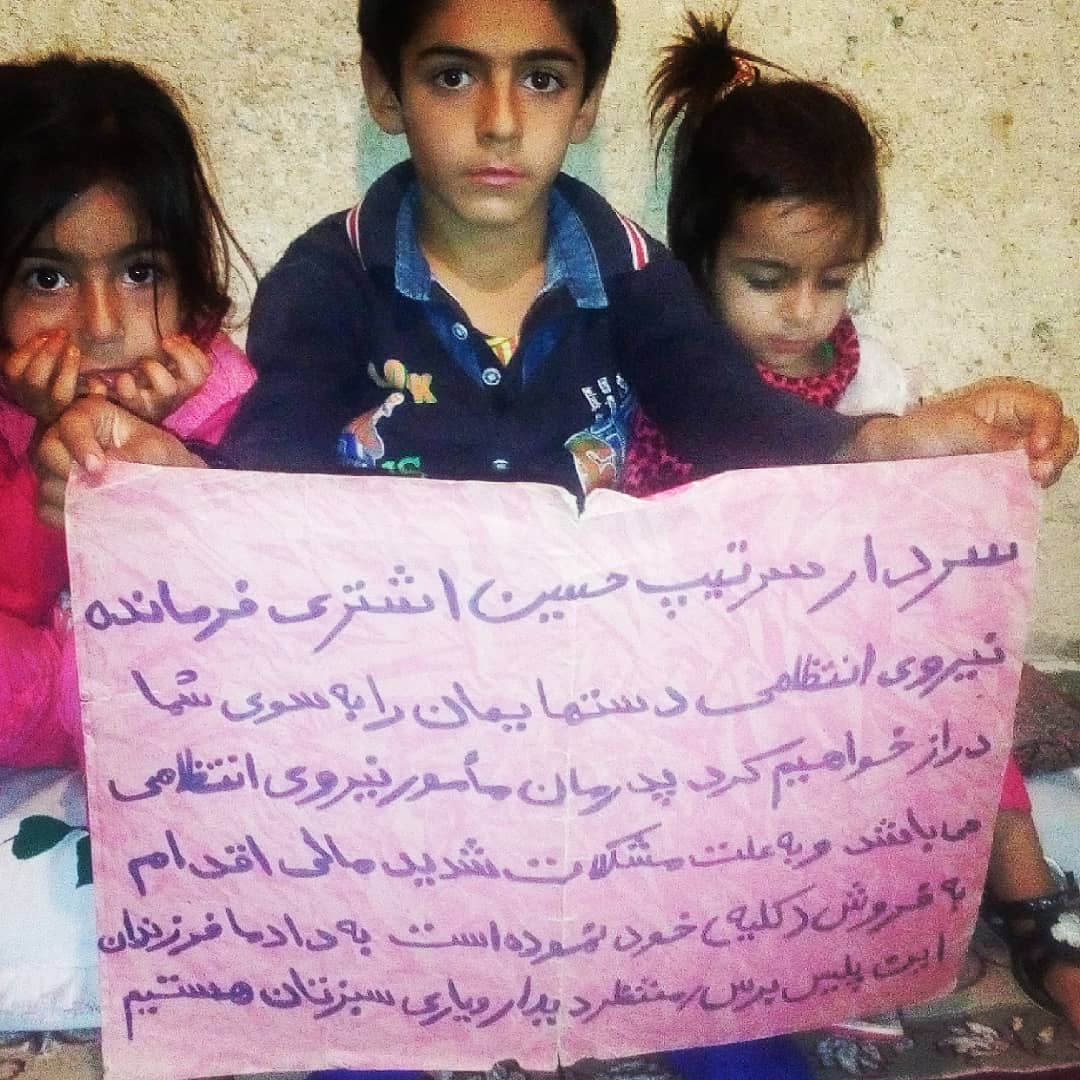 سردار سرتیپ حسین اشتری فرمانده
نیروی انتظامی دستهایمان را به سوی شما
دراز خواهیم کرد پدرمان مأمور نیروی انتظامی
می باشد و به علت مشکلات شدید مالی اقدام
به فروش (کلیه) خود نموده است به داد ما فرزندان
این پلیس برس منتظر دیدار و یاری سبزتان هستیم